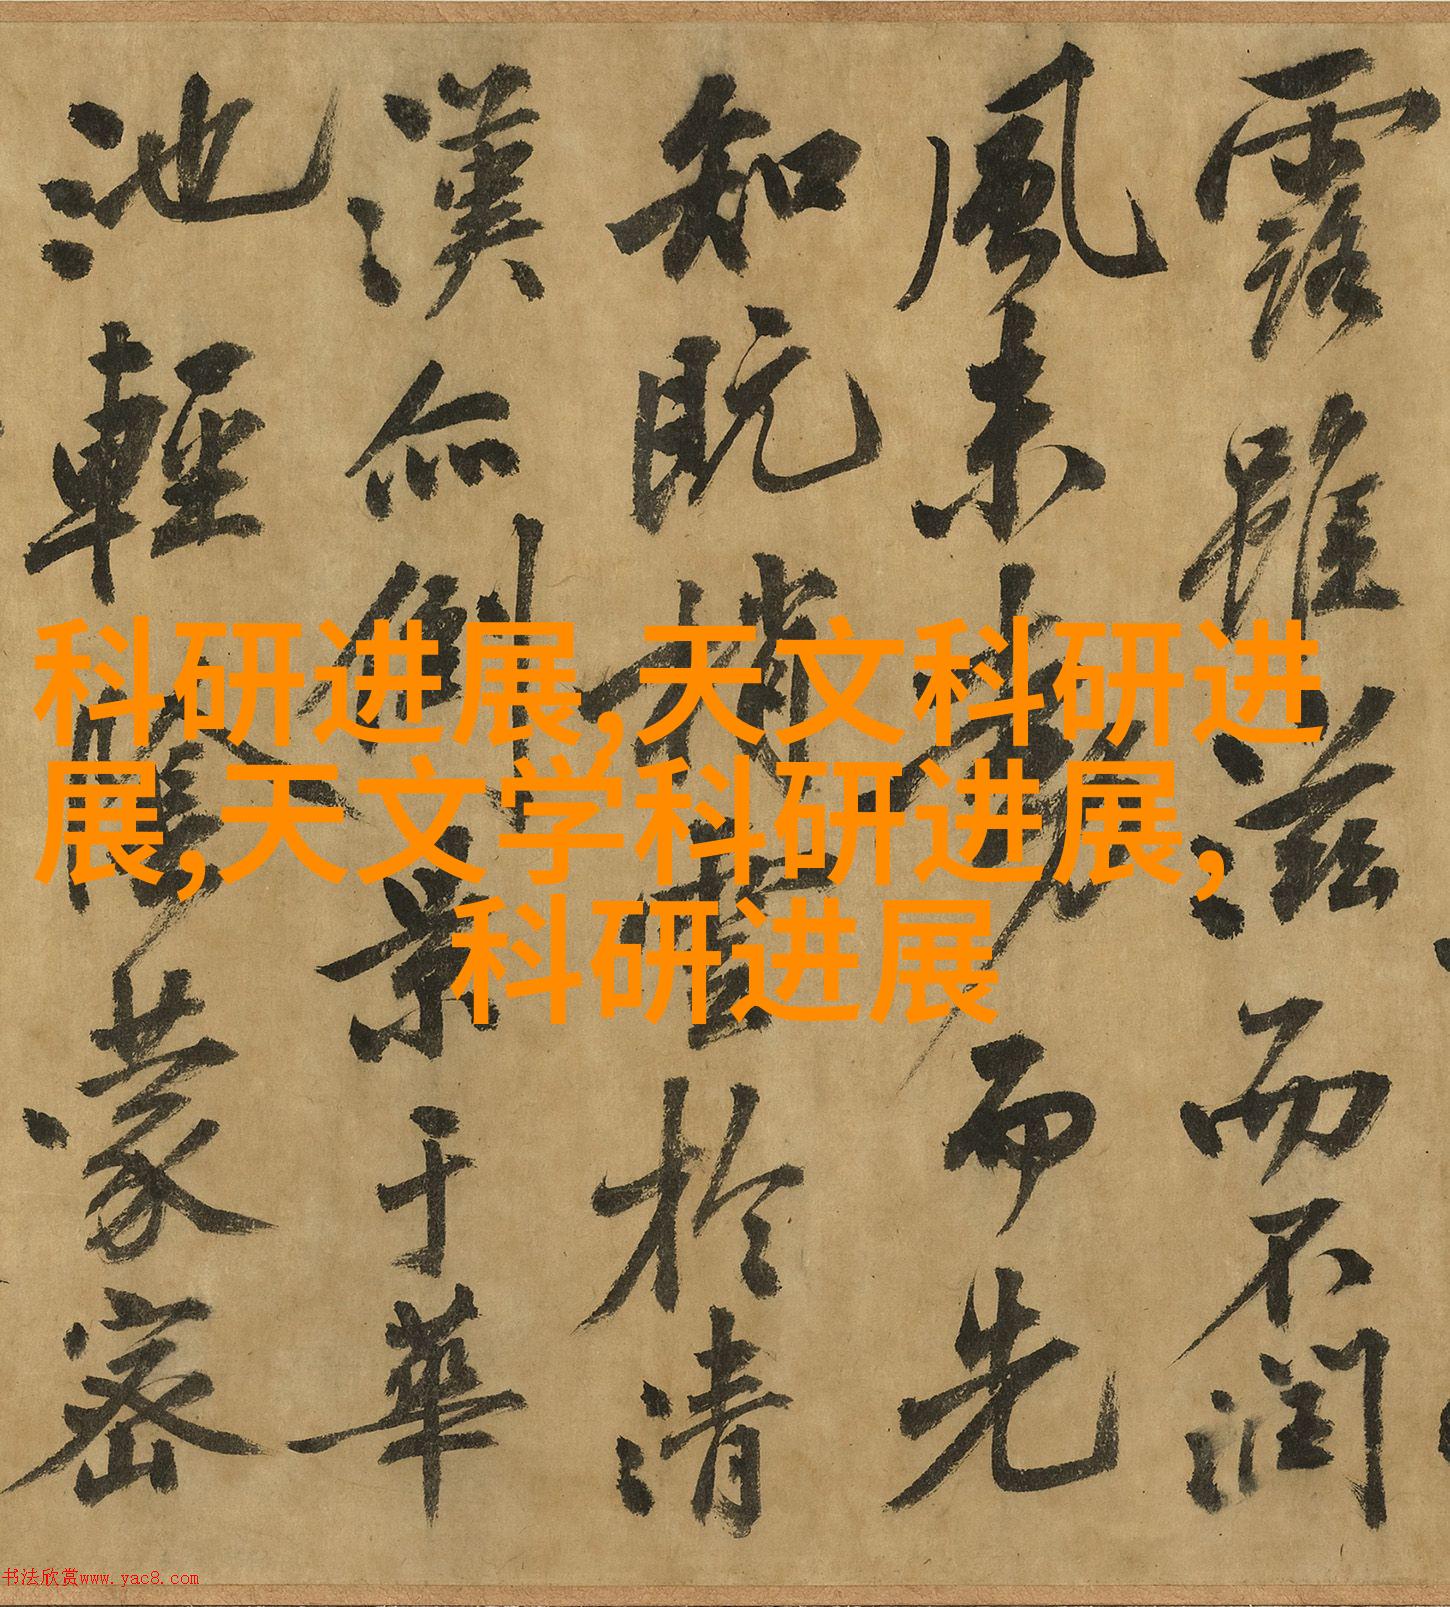 露雖滋而不润
風未而先
知既於清
漢亦景于華
池輕蒙密
科研进展,天文科研进
展,天文学科研进展,
科研进展
书法欣赏www.yac8.com